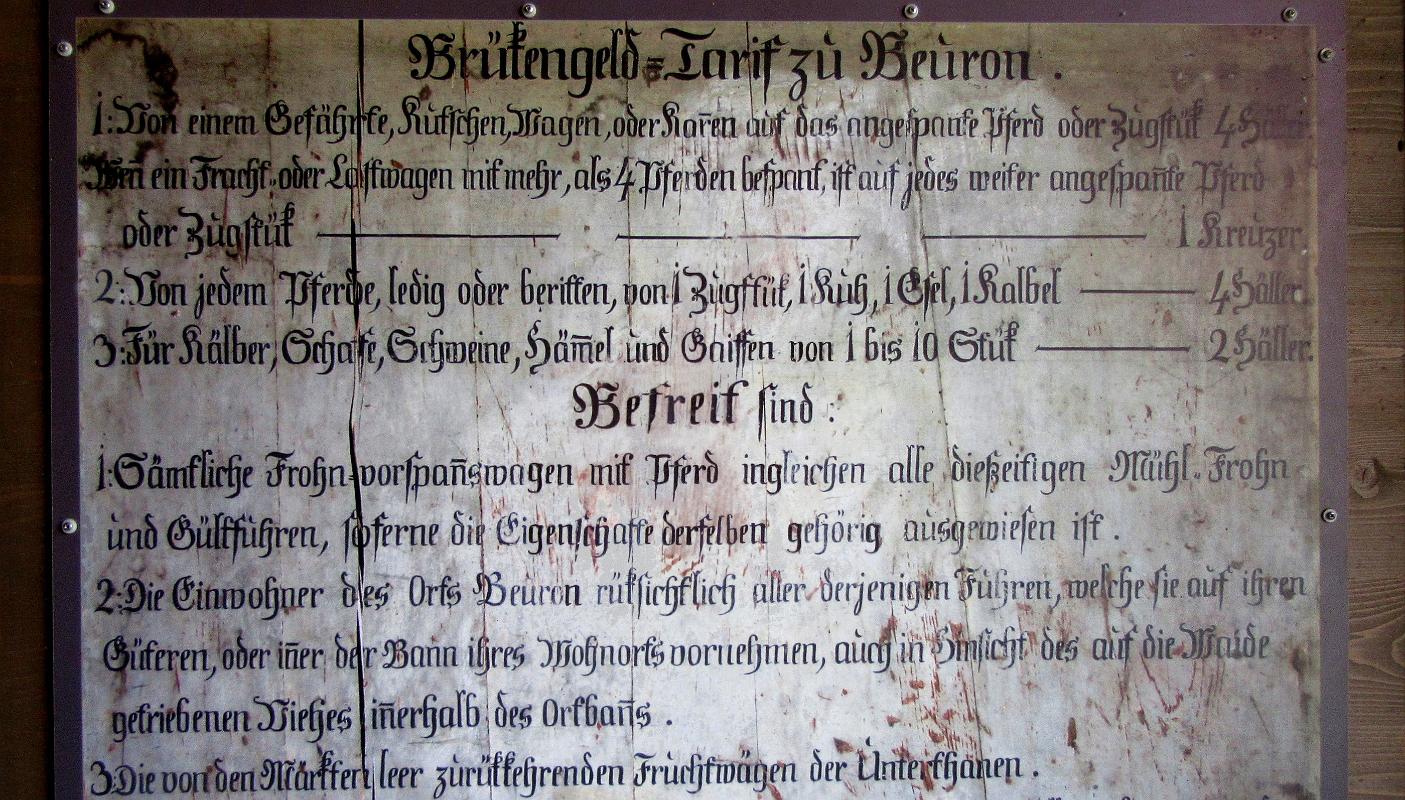 Brükengeld=Tarif zu Beuron .
1: Von einem Gefährte, Kutschen, Wagen, oder Karr̅en auf das angespan̅te Pferd oder Zugstük 4 Häller.
Wen̅ ein Fracht- oder Lastwagen mit mehr, als 4 Pferden bespan̅t, ist auf jedes weiter angespan̅te Pferd
oder Zugstük — — — 1 Kreuzer.
2: Von jedem Pferde, ledig oder beritten, von 1 Zugstük, 1 Kuh, 1 Esel, 1 Kalbel — 4 Häller.
3: Für Kälber, Schafe, Schweine, Häm̅el und Gaissen von 1 bis 10 Stük — 2 Häller.
Befreit sind :
1: Sämtliche Frohn-vorspan̅swagen mit Pferd ingleichen alle dießeitigen Mühl- Frohn
und Gültfuhren, soferne die Eigenschafte derselben gehörig ausgewiesen ist .
2: Die Einwohner des Orts Beuron rüksichtlich aller derjenigen Fuhren, welche sie auf ihren
Güteren, oder in̅er der Bann ihres Wohnorts vornehmen, auch in Hinsicht des auf die Waide
getriebenen Viehes in̅erhalb des Ortban̅s .
3: Die von den Märkten leer zurükkehrenden Fruchtwägen der Unterthanen .